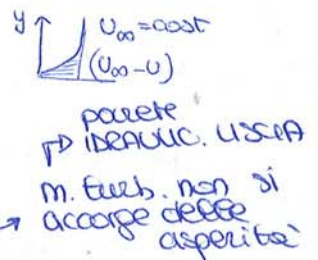 y U∞ = cost
(U∞ - U)
parete
IDRAULIC. LISCIA
m. turb. non si
accorge delle
asperità